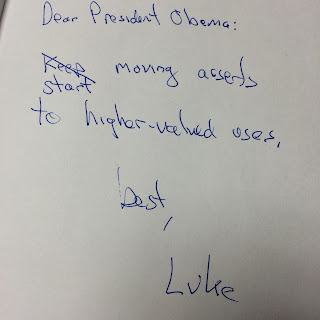 Dear President Obama:
Keep moving asserts
start
to higher-valued uses,
best,
Luke